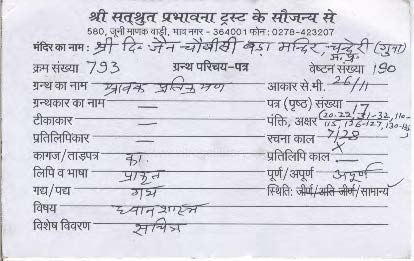 श्री सत्श्रुत प्रभावना ट्रस्ट के सौजन्य से
580, जूनी माणक वाड़ी, भाव नगर - 364001 फोन : 0278-423207
मंदिर का नाम : श्री दि॰ जैन चौबीसी बड़ा मन्दिर, चन्देरी (गुना) म.प्र.
क्रम संख्या 793 ग्रन्थ परिचय-पत्र वेष्टन संख्या 190
ग्रन्थ का नाम श्रावक प्रतिक्रमण आकार से.मी. 26/11
ग्रन्थकार का नाम — पत्र (पृष्ठ) संख्या 17
टीकाकार — पंक्ति, अक्षर (20-22, 31-32, 110-115, 126-127, 130-
प्रतिलिपिकार — रचना काल 7/28
कागज/ताड़पत्र का. प्रतिलिपि काल ×
लिपि व भाषा प्राकृत पूर्ण/अपूर्ण अपूर्ण
गद्य/पद्य गद्य स्थिति: जीर्ण/अति जीर्ण/सामान्य
विषय ध्यान शास्त्र
विशेष विवरण सचित्र